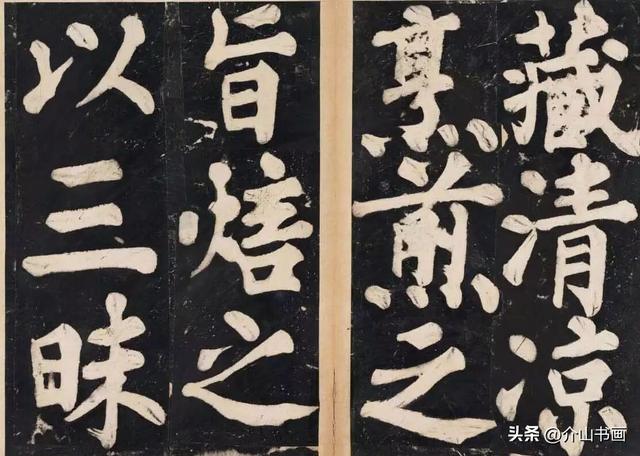 藏清涼
烹煎之
旨焙之
以三昧
头条 @介山书画